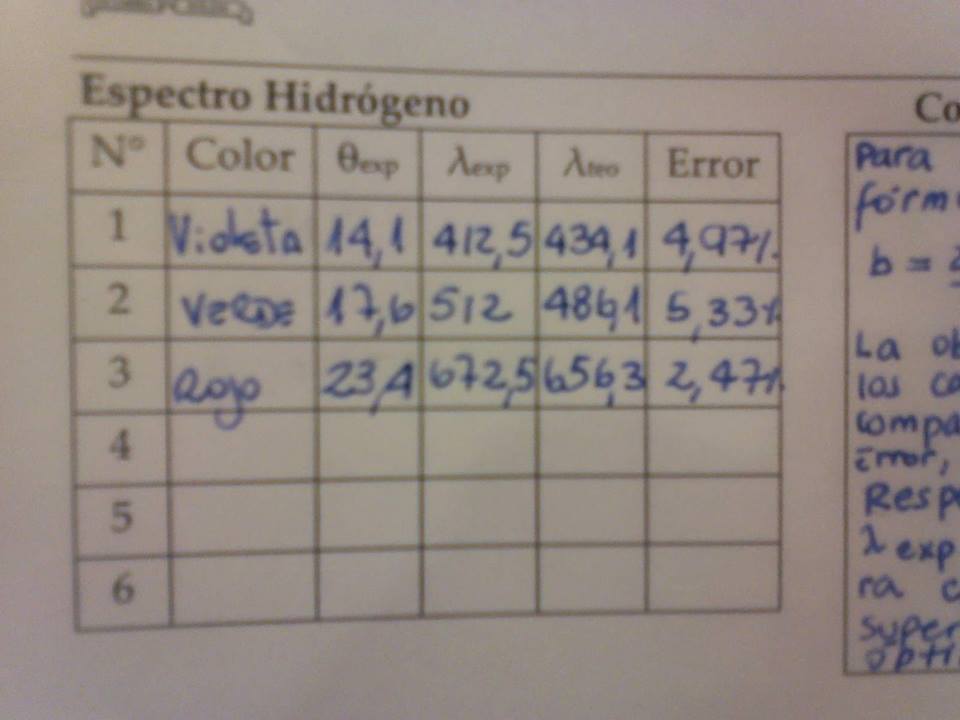 Espectro Hidrógeno
N° Color θexp λexp λteo Error
1 Violeta 14,1 412,5 434,1 4,97%
2 VERDE 17,6 512 486,1 5,33%
3 Rojo 23,4 672,5 656,3 2,47%
4
5
6
Co
Para
fórm
b =
La ob
las co
compa
Error,
Resp
λ exp
ra c
super
opti